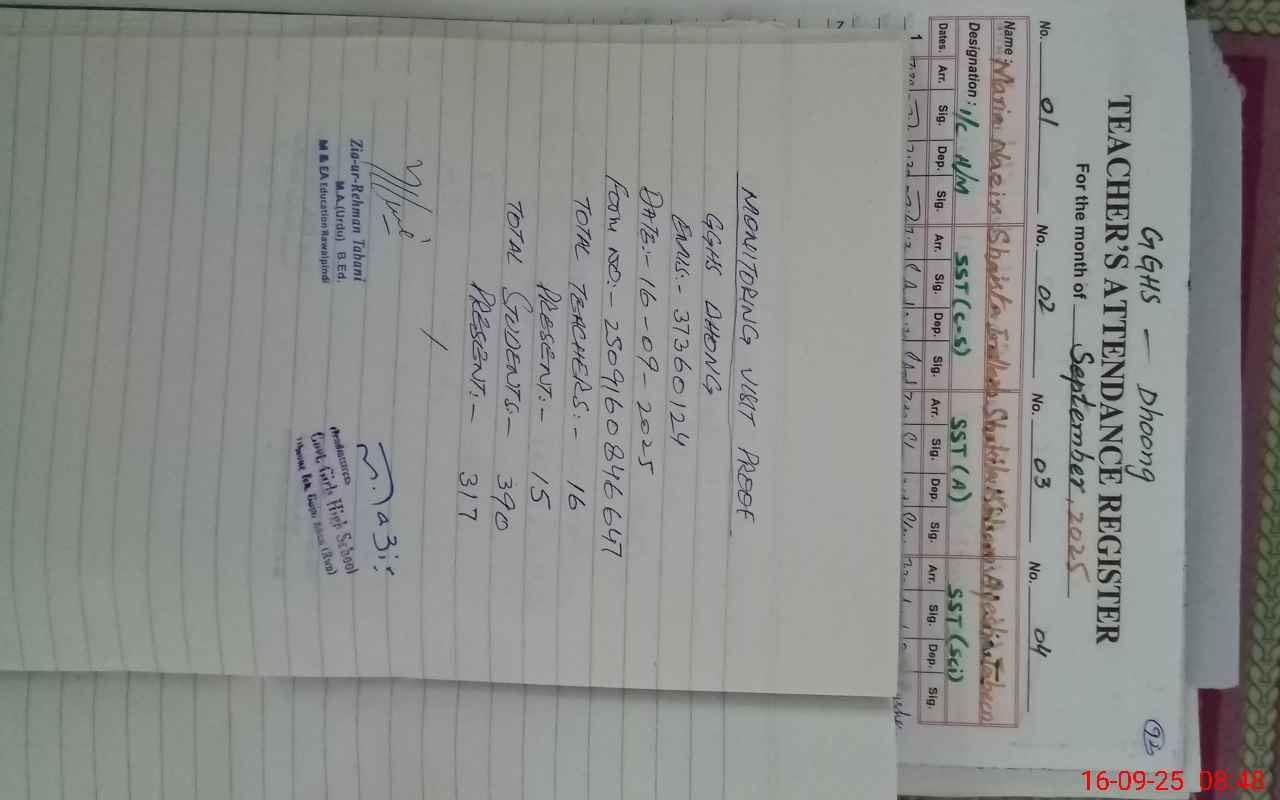 GGHS - Dhoong
92
TEACHER'S ATTENDANCE REGISTER
For the month of September, 2025
No. 01 No. 02 No. 03 No. 04
Name: Maria
Designation: I/C H/M SST (C-S) SST (A) SST (Sci)
Dates. Arr. Sig. Dep. Sig. Arr. Sig. Dep. Sig. Arr. Sig. Dep. Sig. Arr. Sig. Dep. Sig.
1
MONITORING VISIT PROOF
GGHS DHONG
EMIS:- 37360124
DATE:- 16-09-2025
FORM NO:- 250916084 6647
TOTAL TEACHERS:- 16
PRESENT:- 15
TOTAL STUDENTS:- 390
PRESENT:- 317
Zia-ur-Rehman Tabani
M.A.(Urdu) B.Ed.
M & EA Education Rawalpindi
Headmistress
Govt. Girls High School
16-09-25 08:48